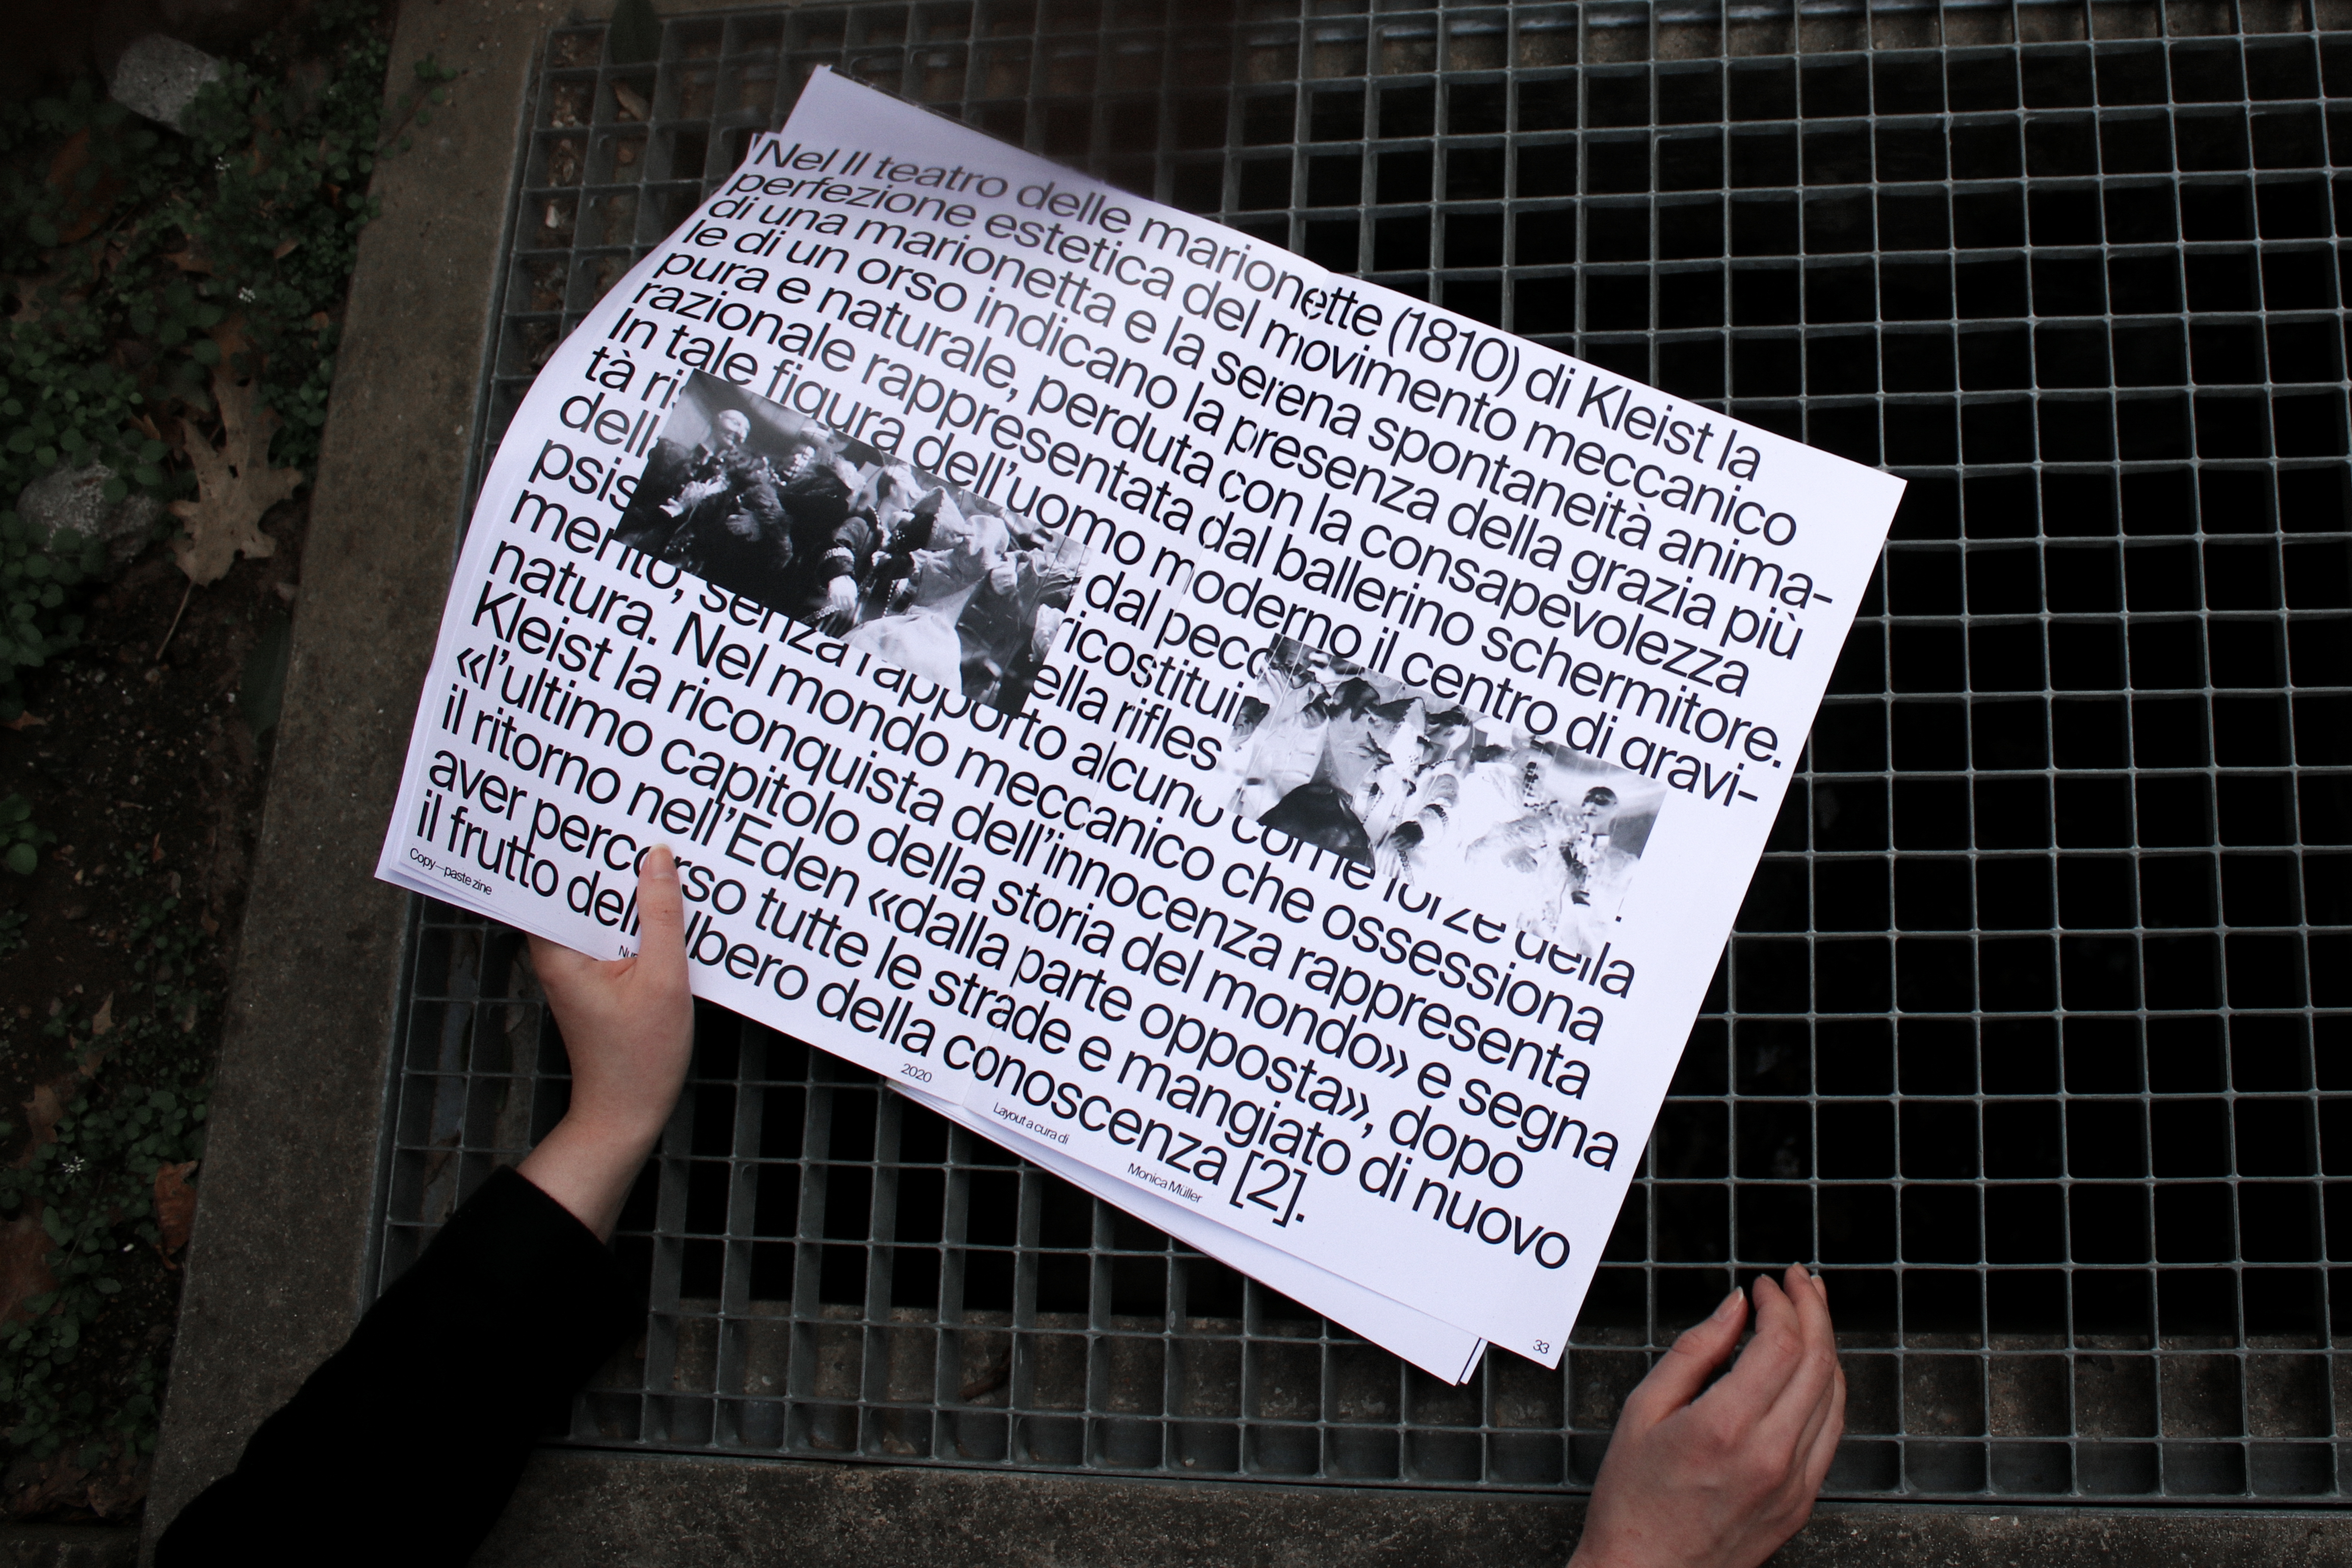 Nel Il teatro delle marionette (1810) di Kleist la
perfezione estetica del movimento meccanico
di una marionetta e la serena spontaneità anima-
le di un orso indicano la presenza della grazia più
pura e naturale, perduta con la consapevolezza
razionale rappresentata dal ballerino schermitore.
In tale figura dell’uomo moderno il centro di gravi-
tà ri dal pecc
dell ricostitui
psis ella rifles
mento, senza rapporto alcuno come forze della
natura. Nel mondo meccanico che ossessiona
Kleist la riconquista dell’innocenza rappresenta
«l’ultimo capitolo della storia del mondo» e segna
il ritorno nell’Eden «dalla parte opposta», dopo
aver percorso tutte le strade e mangiato di nuovo
il frutto dell lbero della conoscenza [2].
Copy—paste zine
2020
Layout a cura di
Monica Müller
33